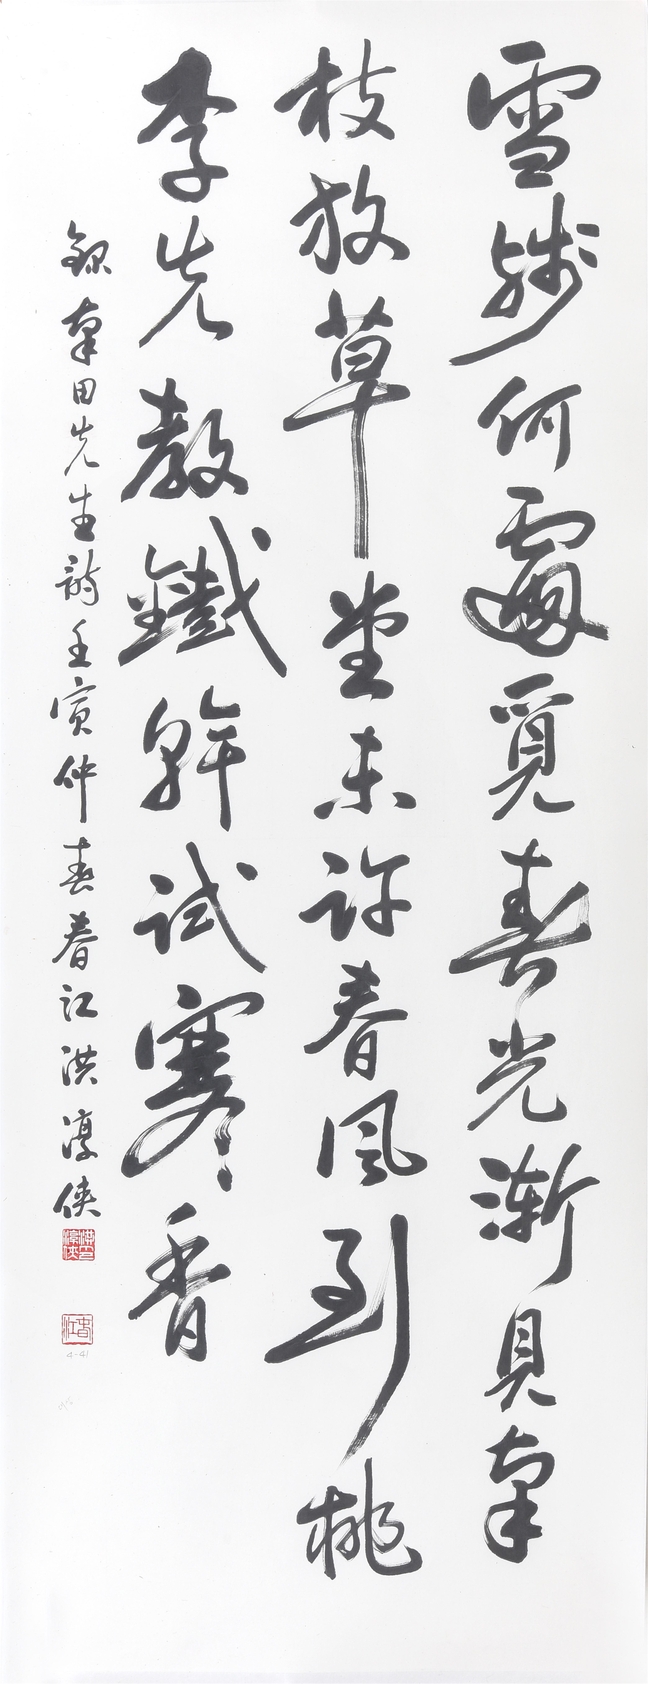 雪殘何處覓春光漸見南
枝放草堂未許春風到桃
李先教鐵幹試寒香
錄南田先生詩壬寅仲春春江洪淳俠
春江
4-41